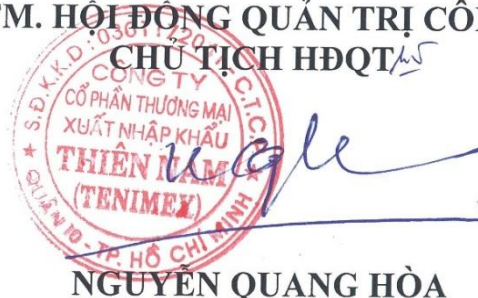 TM. HỘI ĐỒNG QUẢN TRỊ CÔ
CHỦ TỊCH HĐQT
S.Đ.K.K.D: 0301
C.T.C.
CÔNG TY
CỔ PHẦN THƯƠNG MẠI
XUẤT NHẬP KHẨU
THIÊN NAM
(TENIMEX)
QUẬN 10 - TP. HỒ CHÍ MINH
NGUYỄN QUANG HÒA